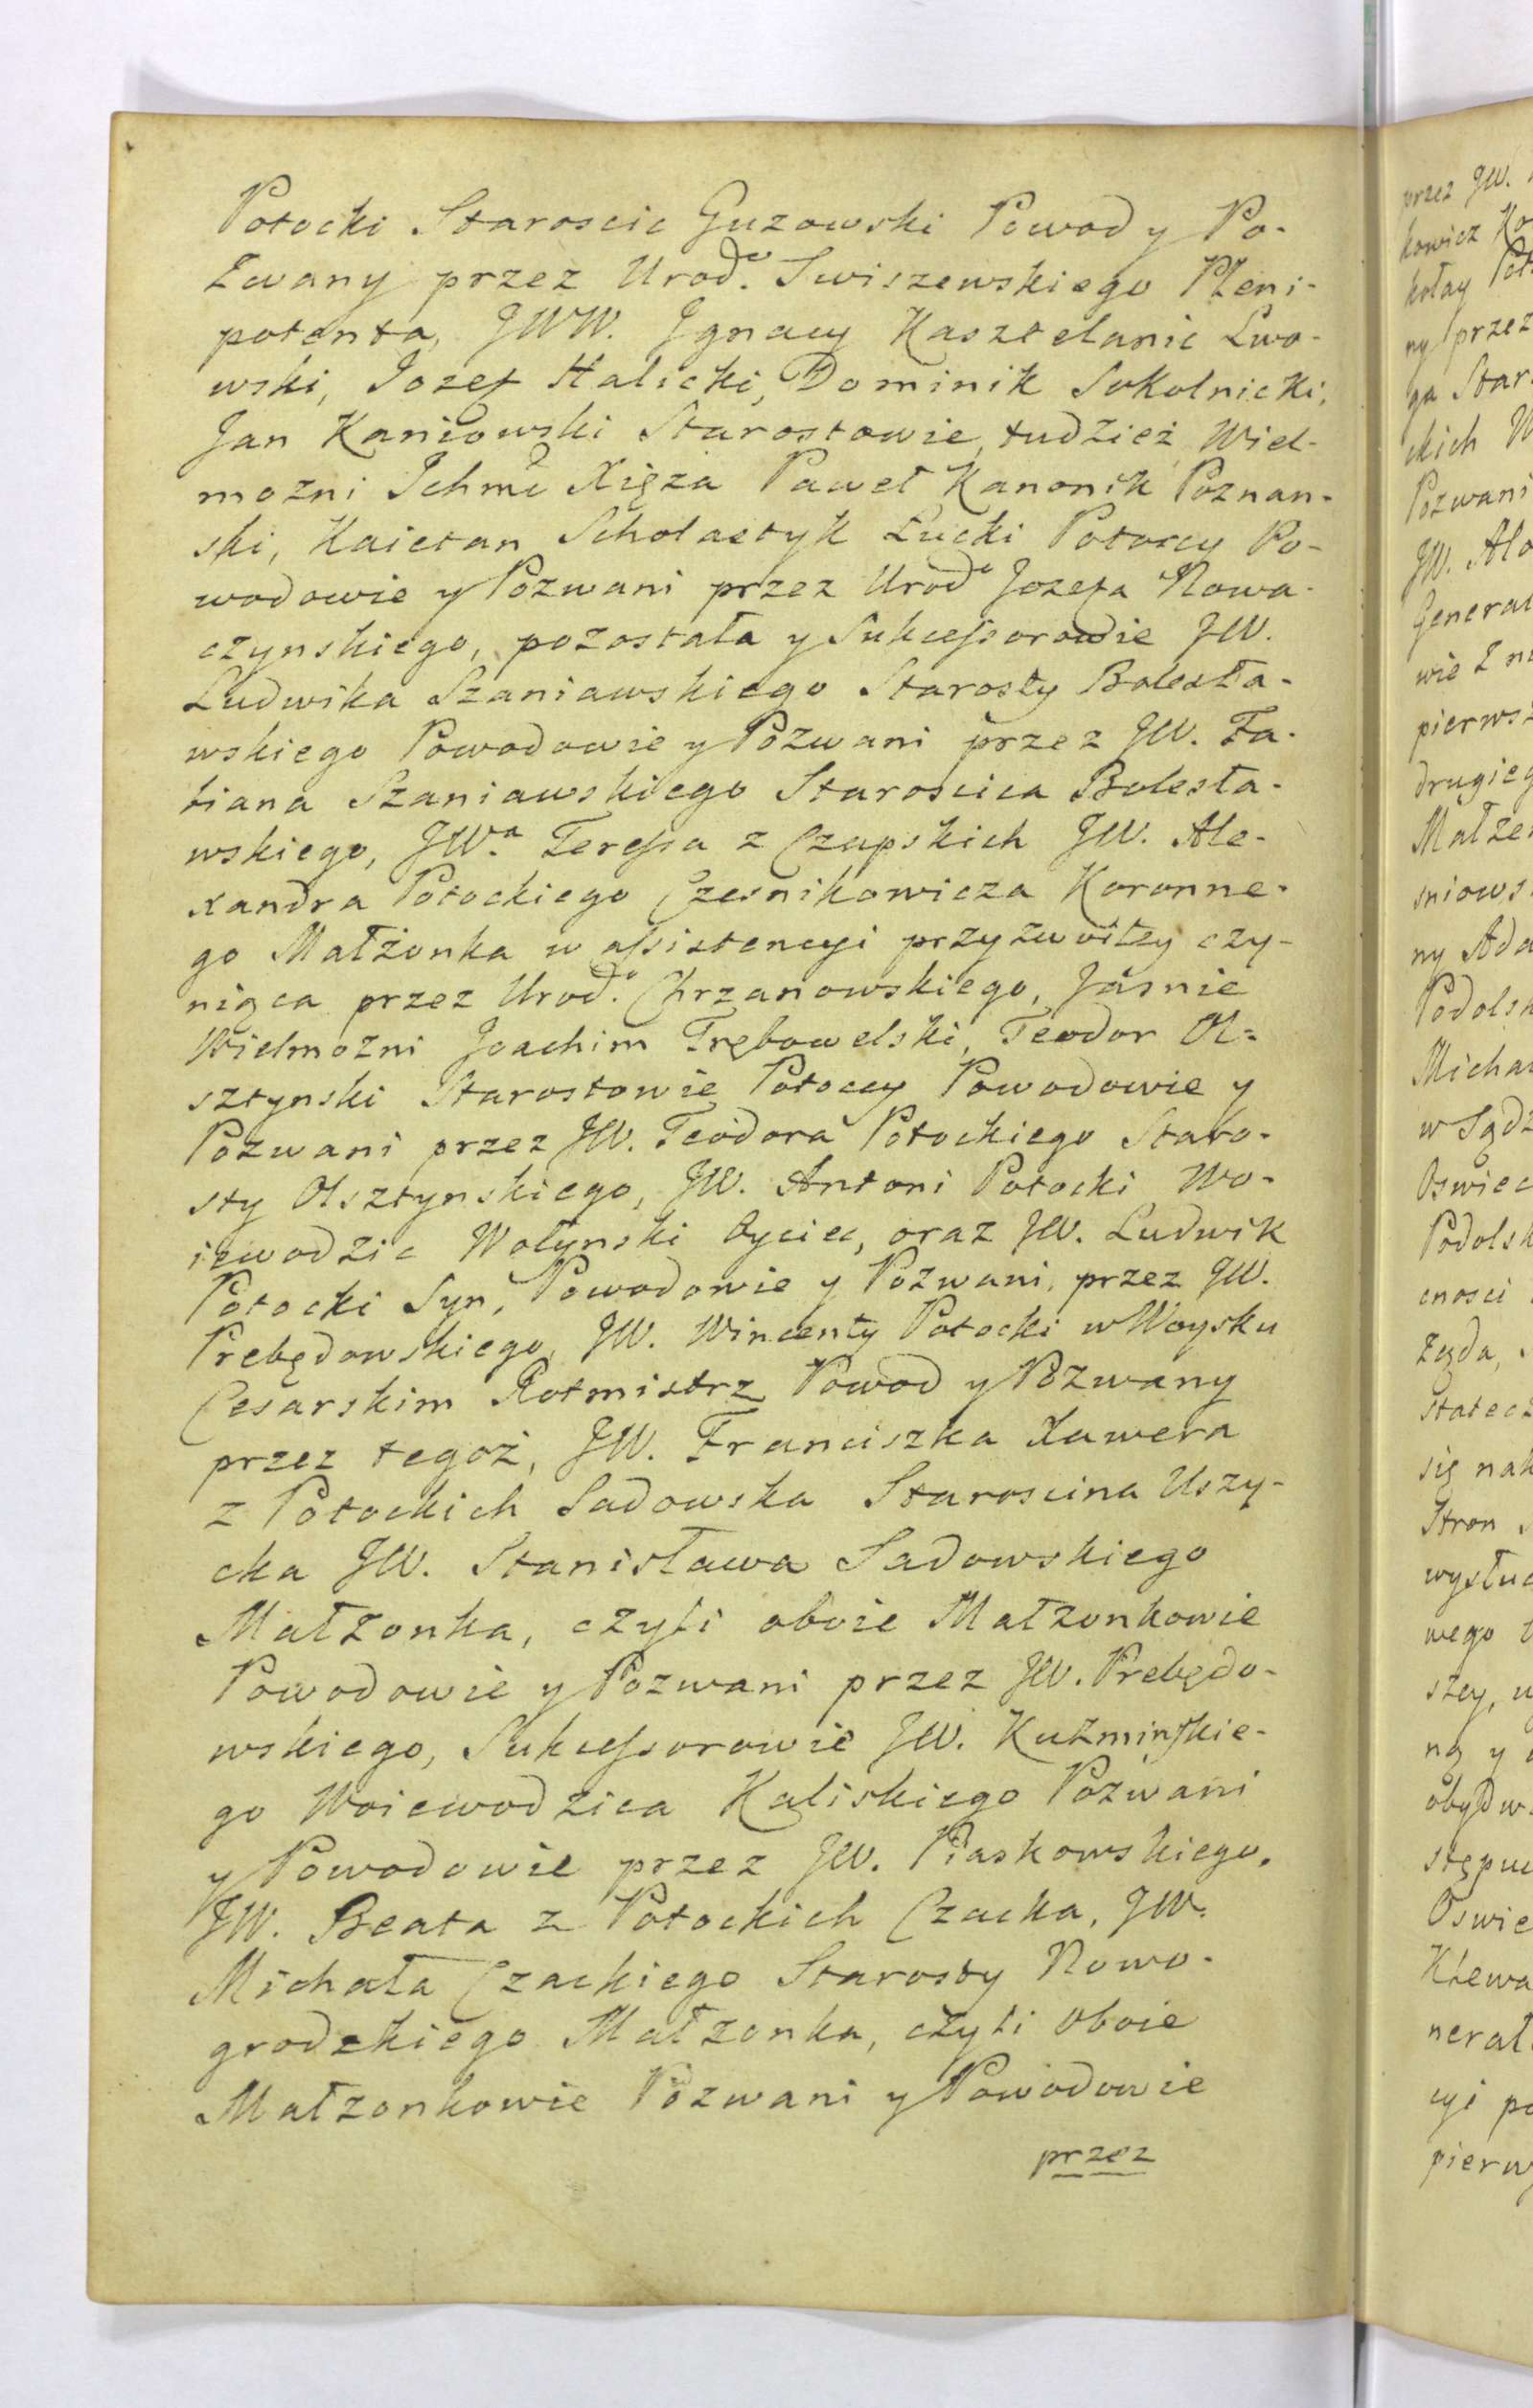 Potocki Staroscic Guzowski Powod y Po-
zwany przez Urod.º Swiszewskiego Pleni-
potenta, JWW. Jgnacy Kasztelanic Lwo-
wski, Jozef Halicki, Dominik Sokolnicki,
Jan Kaniowski Starostowie, tudzież Wiel-
mozni Jchmć Xięża Paweł Kanonik Poznan-
ski, Kaietan Scholastyk Łucki Potoccy Po-
wodowie y Pozwani przez Urodº Jozefa Nowa-
czynskiego, pozostała y Sukcessorowie JW.
Ludwika Szaniawskiego Starosty Bolesła-
wskiego Powodowie y Pozwani przez JW. Fa-
biana Szaniawskiego Staroscica Bolesła-
wskiego, JWª. Teressa z Czapskich JW. Ale-
xandra Potockiego Czesnikowicza Koronne-
go Małżonka w assistencyi przyzwoitey czy-
niąca przez Urod.º Chrzanowskiego, Jasnie
Wielmozni Joachim Trębowelski, Teodor Ol-
sztynski Starostowie Potoccy Powodowie y
Pozwani przez JW. Teodora Potockiego Staro-
sty Olsztynskiego, JW. Antoni Potocki Wo-
iewodzic Wołynski Oyciec, oraz JW. Ludwik
Potocki Syn, Powodowie y Pozwani, przez JW.
Prebędowskiego, JW. Wincenty Potocki w Woysku
Cesarskim Rotmistrz Powod y Pozwany
przez tegoż, JW. Franciszka Xawera
z Potockich Sadowska Staroscina Uszy-
cka JW. Stanisława Sadowskiego
Małzonka, czyli oboie Małzonkowie
Powodowie y Pozwani przez JW. Prebędo-
wskiego, Sukcessorowie JW. Kuzminskie-
go Woiewodzica Kaliskiego Pozwani
y Powodowie przez JW. Piaskowskiego,
JW. Beata z Potockich Czacka, JW.
Michała Czackiego Starosty Nowo-
grodzkiego Małzonka, czyli oboie
Małzonkowie Pozwani y Powodowie
przez
przez JW.
kowicz
kołay
ny przez
ga Star
ckich
Pozwani
JW.
General
wie
pierws
drugieg
Małze
sniows
ny Ada
Podolsk
Micha
w Sądz
Oswiec
Podolsk
cnosci
zgda,
statecz
się nak
Stron
wysłuc
wego
szey,
ną y
obydw
stępue
Oswie
nerał
cyi po
pierw